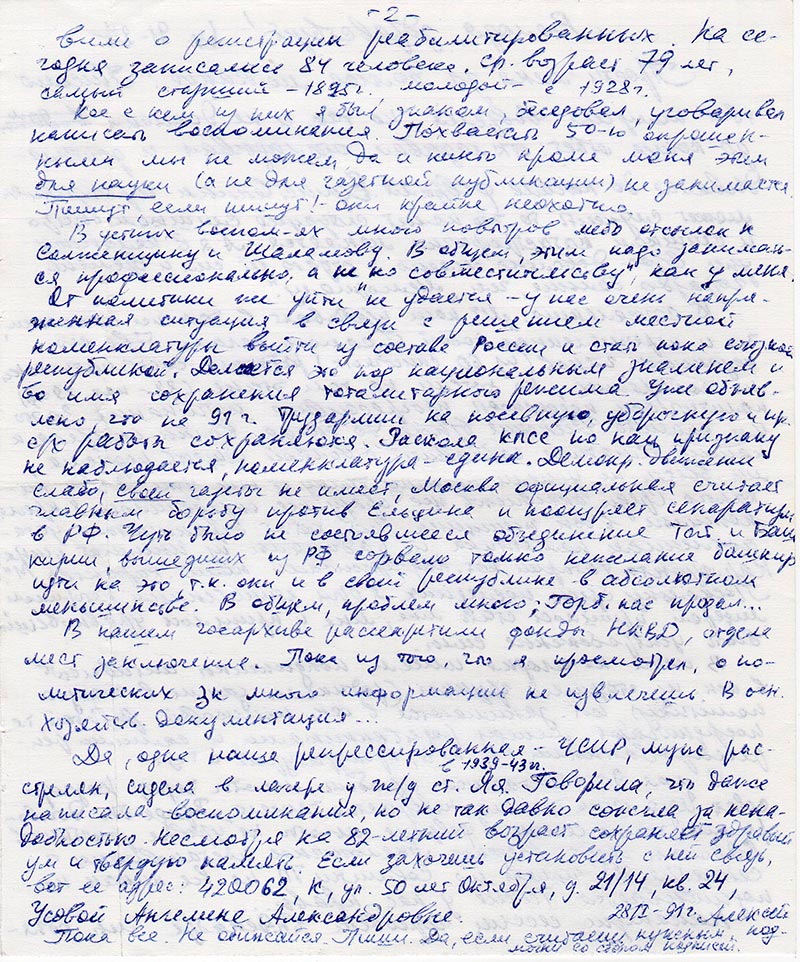 -2-
вили о регистрации реабилитированных. На се-
годня записалися 84 человека. Ср. возраст 79 лет,
самый старший - 1895г. молодой - с 1928г.
Кое с кем из них я был знаком, беседовал, уговаривал
написать воспоминания. Похвастать 50-ю опрошен-
ными мы не можем, да и никто кроме меня этим
для науки (а не для газетной публикации) не занимается.
Пишут, если пишут! - они крайне неохотно.
В устных воспом-ях много повторов либо отсылок к
Солженицину и Шаламову. В общем, этим надо занимать-
ся профессионально, а не "по совместительству", как у меня.
От политики же уйти не удается - у нас очень напря-
женная ситуация в связи с решением местной
номенклатуры выйти из состава России и стать пока союзной
республикой. Делается это под национальным знаменем и
во имя сохранения тоталитарного режима. Уже объяв-
лено, что на 91 г. Трудармии на посевную, уборочную и пр.
с/х работы сохраняются. Раскола КПСС по наш признаку
не наблюдается, номенклатура - едина. Демокр. движение
слабо, своей газеты не имеет, Москва официальная считает
главным борьбу против Ельцина и поощряет сепаратизм
в РФ. Чуть было не состоявшееся объединение Тат. и Баш-
кирии, вышедших из РФ сорвало только нежелание башкир
идти на это, т.к. они и в своей республике в абсолютном
меньшинстве. В общем, проблем много, Горб. нас продал...
В нашем госархиве рассекретили фонды НКВД, отдела
мест заключение. Пока из того, что я просмотрел, о по-
литических зк много информации не извлечешь. В осн.
хозяйств. документация...
Да, одна наша репрессированная - ЧСИР, муж рас-
стрелян, сидела в лагере у ж/д ст. Яя. в 1939-43гг. Говорила, что даже
написала воспоминания, но не так давно сожгла за нена-
добностью. Несмотря на 82-летний возраст сохраняет здравый
ум и твердую память. Если захочешь установить с ней связь,
вот ее адрес: 420062, К, ул. 50 лет Октября, д. 21/14, кв. 24,
Усовой Ангелине Александровне.
28/II-91г. Алексей
Пока все. Не обижайся. Пиши. Да, если считаешь нужным, под-
со сбором подписи.